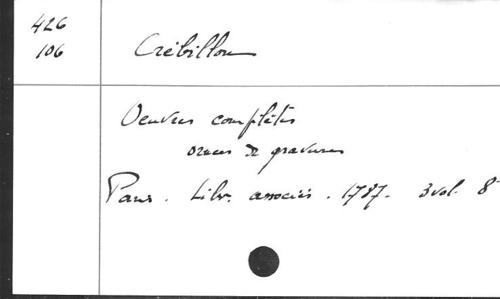 426
106
Crébillon
Oeuvres complètes
ornées de gravures
Paris. Libr. associés. 1787. 3 vol. 8°